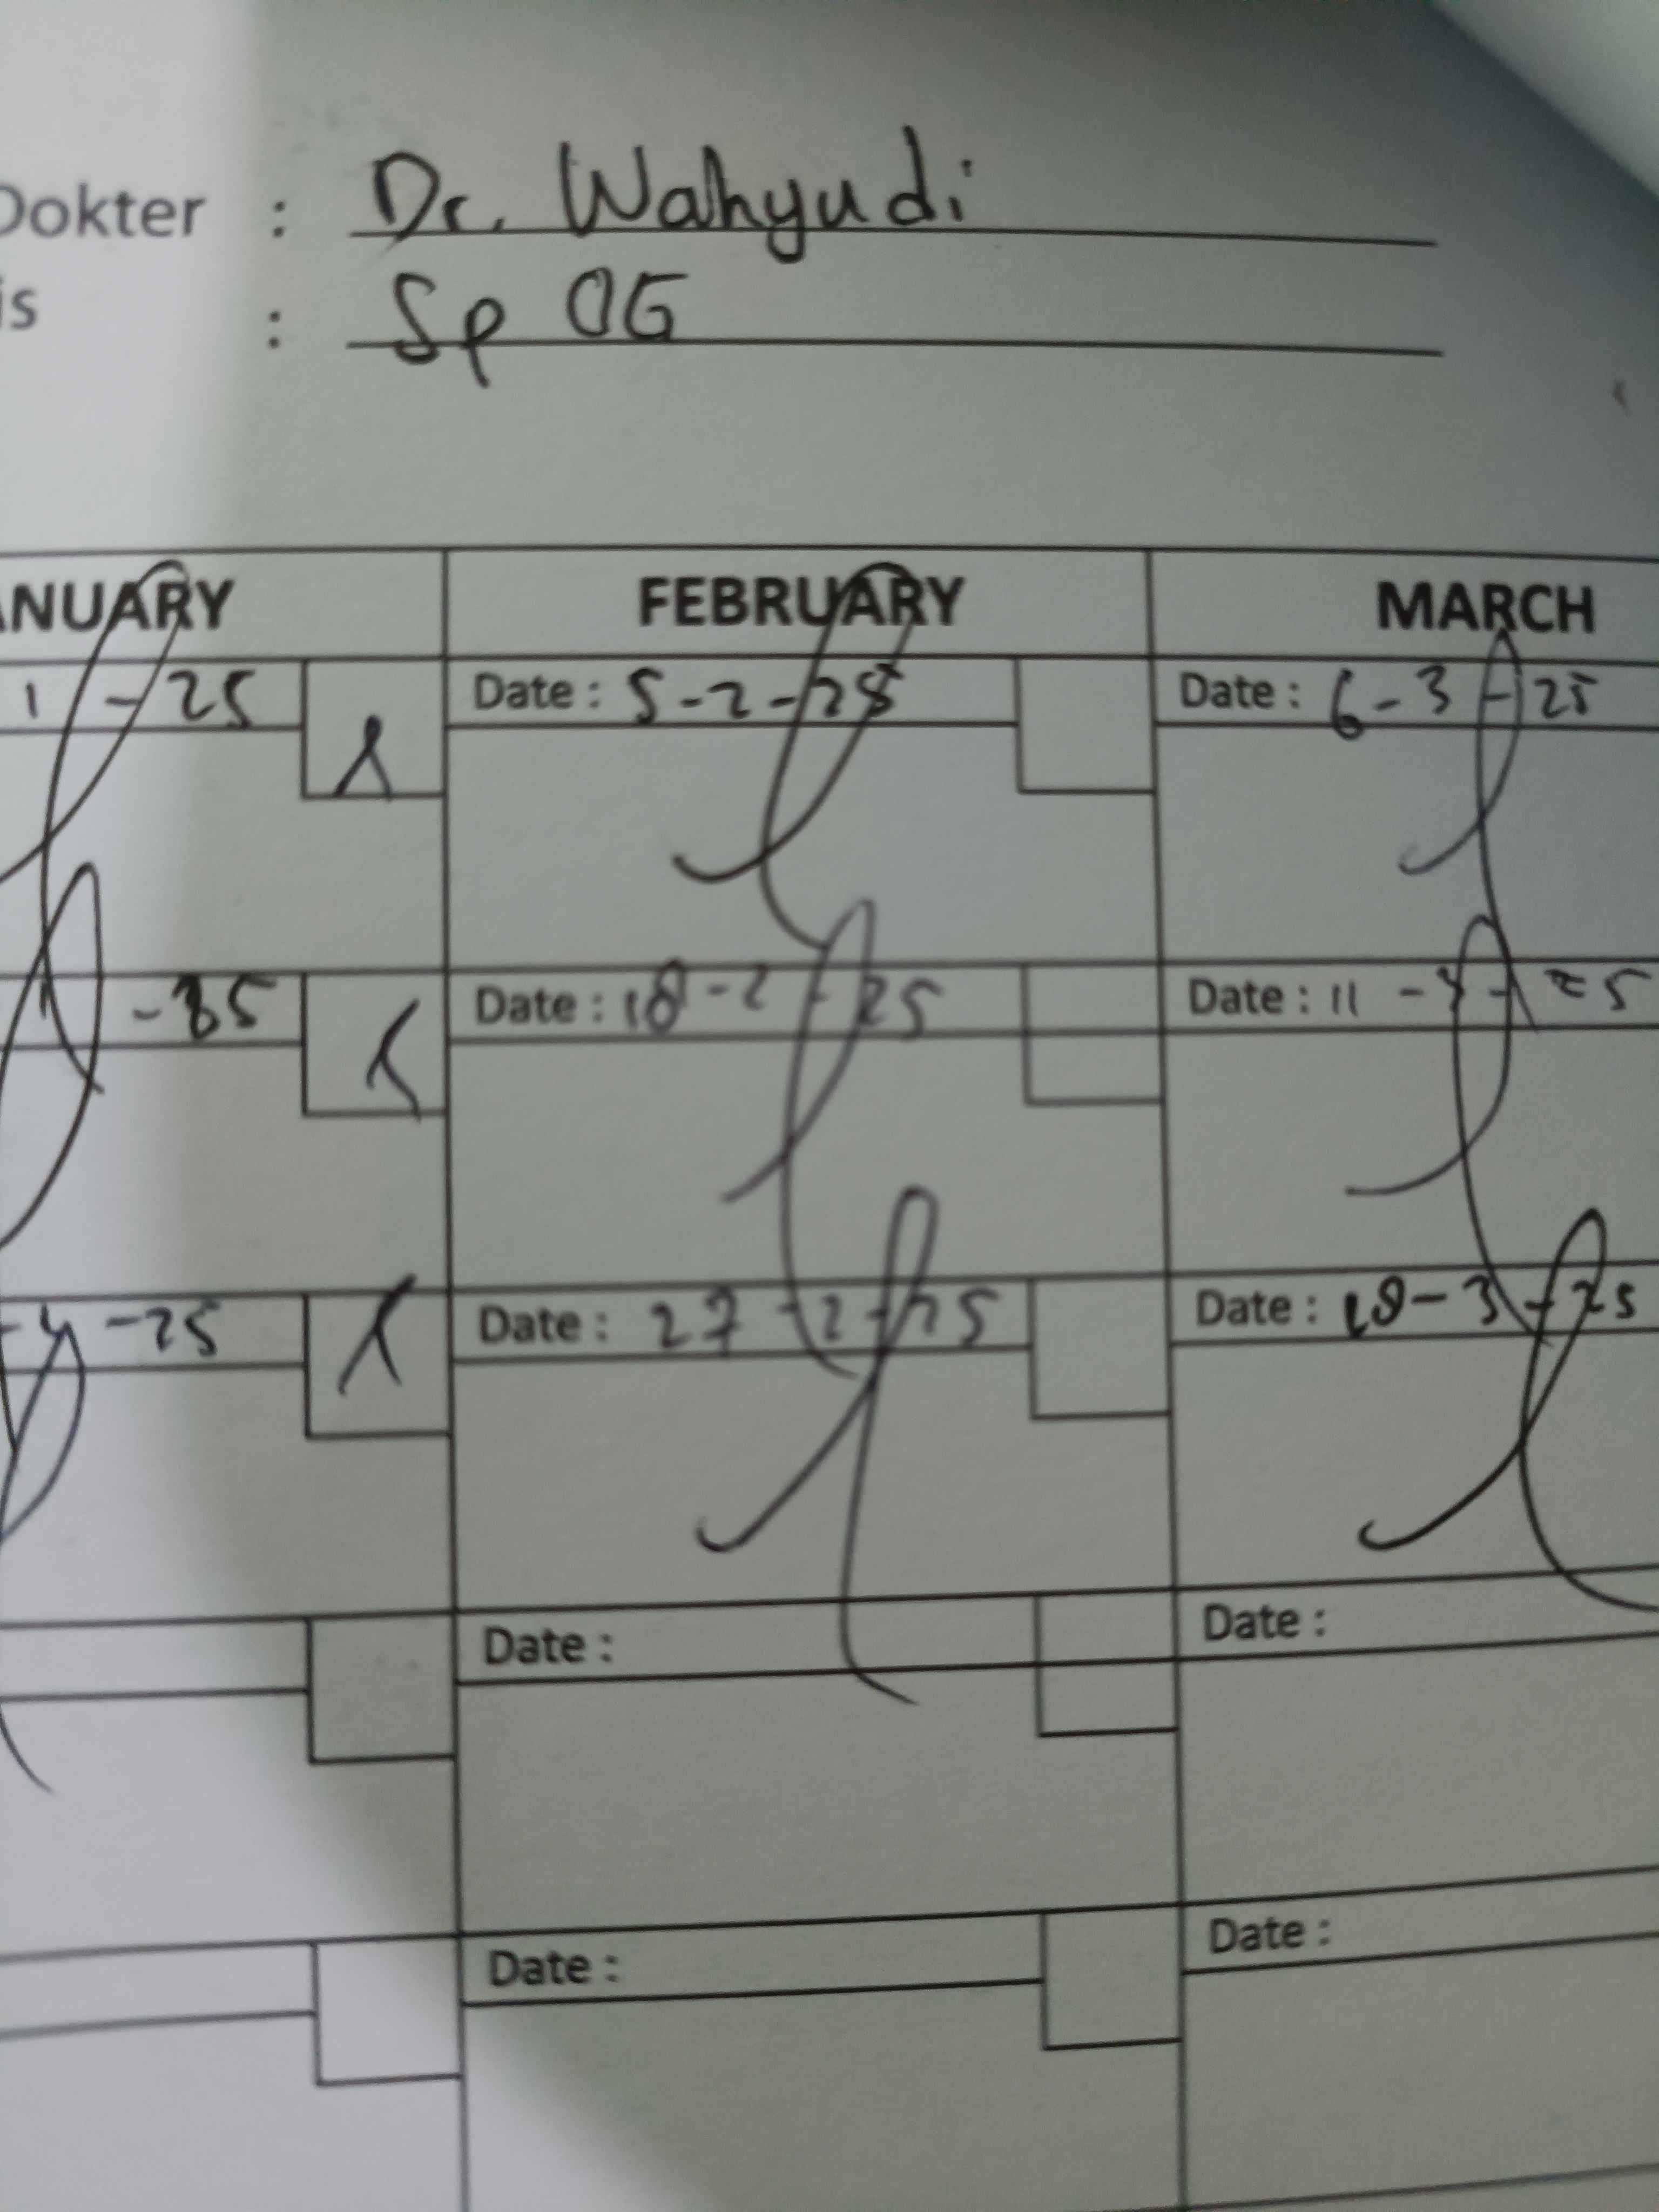 Dokter : Dr. Wahyudi
is : Sp OG
ANUARY FEBRUARY MARCH
1 - 25 Date : 5-2-25 Date : 6-3-25
Date : 18-2-25 Date : 11
-25 Date : 27-2-25 Date : 18-3-25
Date : Date :
Date : Date :